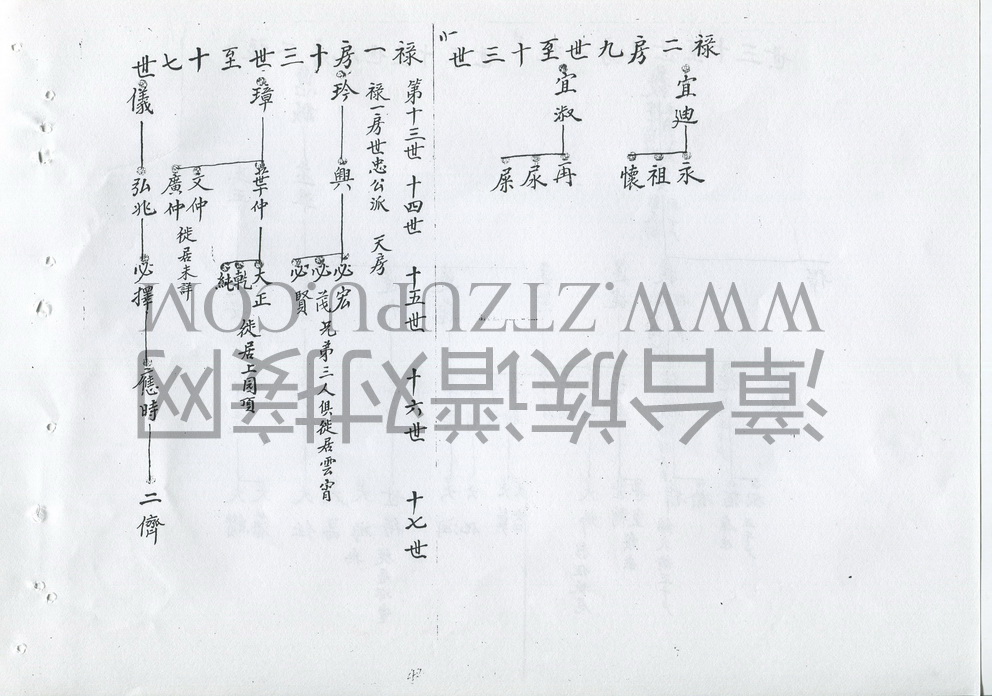 禄二房九世至十三世
宜迪
永
祖
懷
宜淑
再
尿
屎
禄一房十三世至十七世
第十三世 十四世 十五世 十六世 十七世
禄一房世忠公派 天房
玲
興
必宏
必茂
必賢
兄弟三人俱徙居雲霄
璋
世仲
文仲
廣仲
徙居未詳
大正
乾
純
徙居上園頂
儀
弘兆
必擇
應時
二儕
WWW.ZTZUPU.COM
漳台族谱对接网